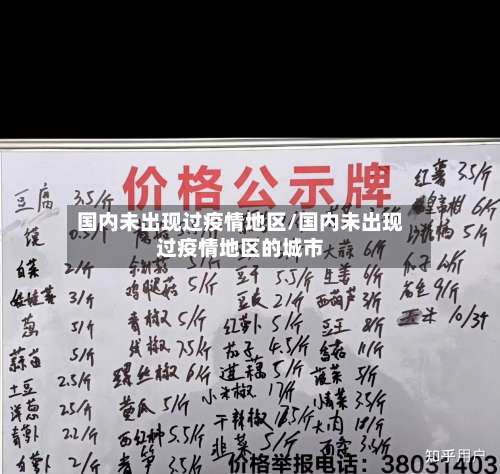 价格公示牌
国内未出现过疫情地区/国内未出现
过疫情地区的城市
豆腐 3.5/斤
馍 0.5/个
白菜 2/斤
娃娃菜 3/斤
葱 5/斤
蒜苗 5/斤
土豆 2.5/斤
洋葱 2.5/斤
青萝卜 2.2/斤
白萝卜 2/斤
鸡腿菇 5/斤
青椒 5/斤
线椒 7.5/斤
螺丝椒 6/斤
黄瓜 5/斤
西红柿 5.5/斤
青笋 3.5/斤
豆干 5.5/斤
豆皮 2/斤
红萝卜 5/斤
茄子 4.5/斤
莲藕 5/斤
小米椒 12/斤
干辣椒
韭菜 5/斤
大蒜 6/斤
生姜 6/斤
西葫芦 3/斤
豆王 8/斤
香菇 11/斤
菠菜 5/斤
小油菜 3.5/斤
大肉
红薯 3.5/斤
6/斤
5/斤
10/斤
花生 9/斤
玉米 10/3个
价格举报电话：38031403
知乎用户